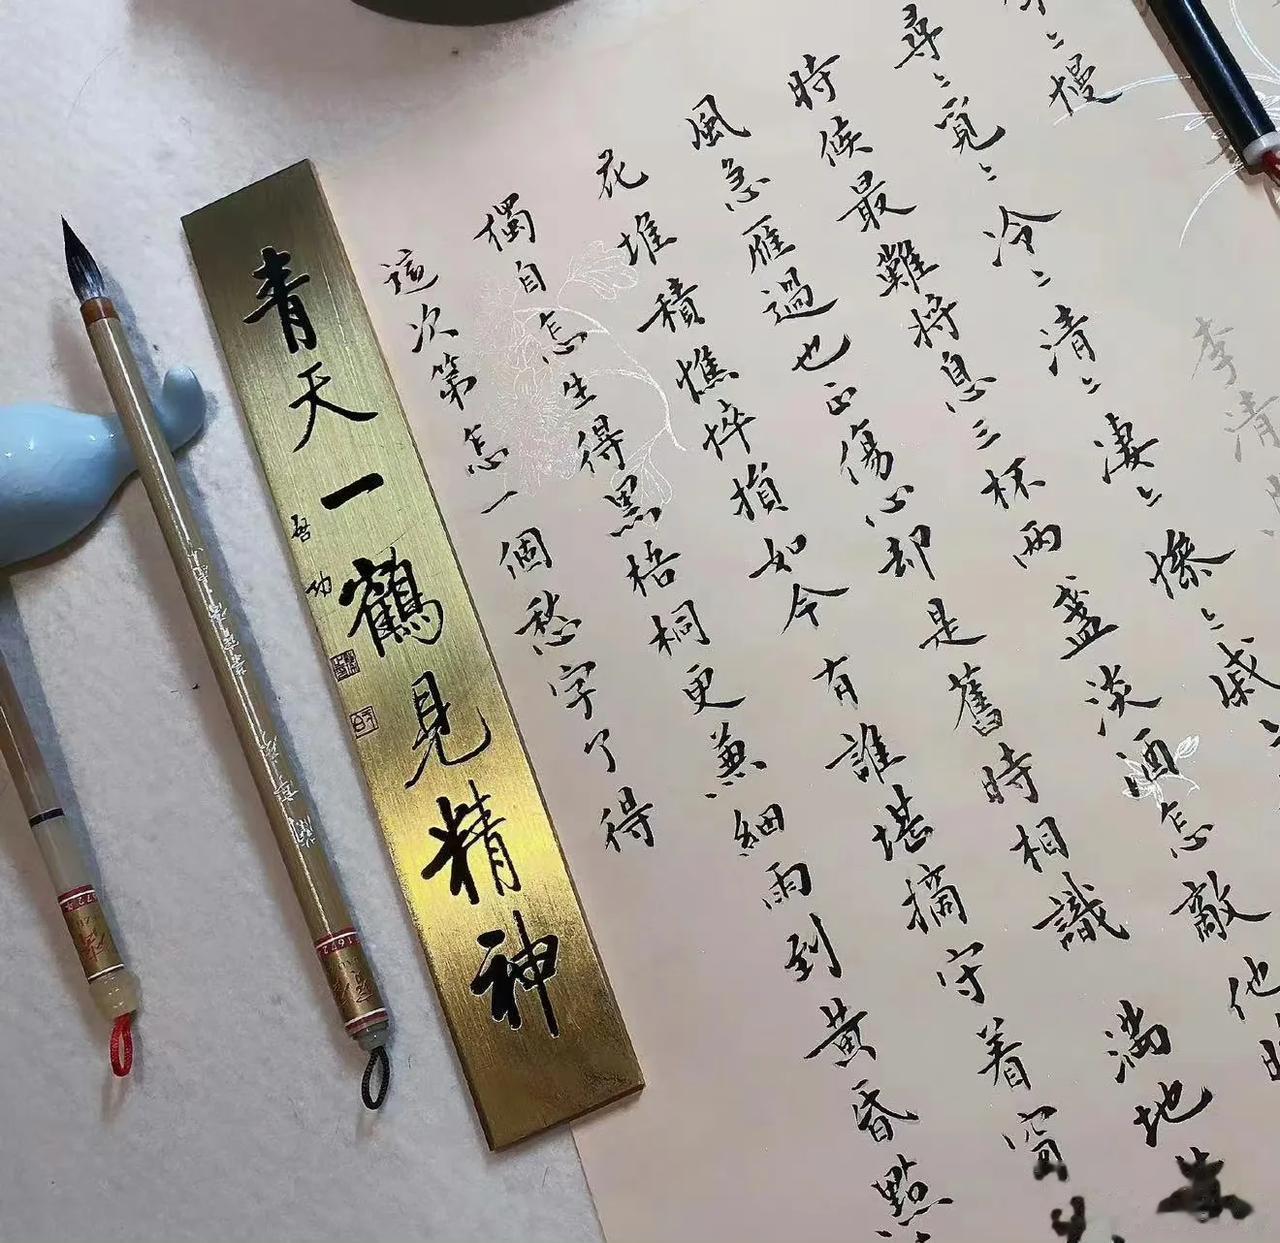 〻慢
李清
尋〻覓〻冷〻清〻凄〻慘〻戚〻
時候最難將息三杯兩盞淡酒怎敵他
風急雁過也正傷心却是舊時相識 滿地
花堆積憔悴損如今有誰堪摘守着窗
獨自怎生得黑梧桐更兼細雨到黃昏點
這次第怎一個愁字了得
青天一鶴見精神
啓功
1672